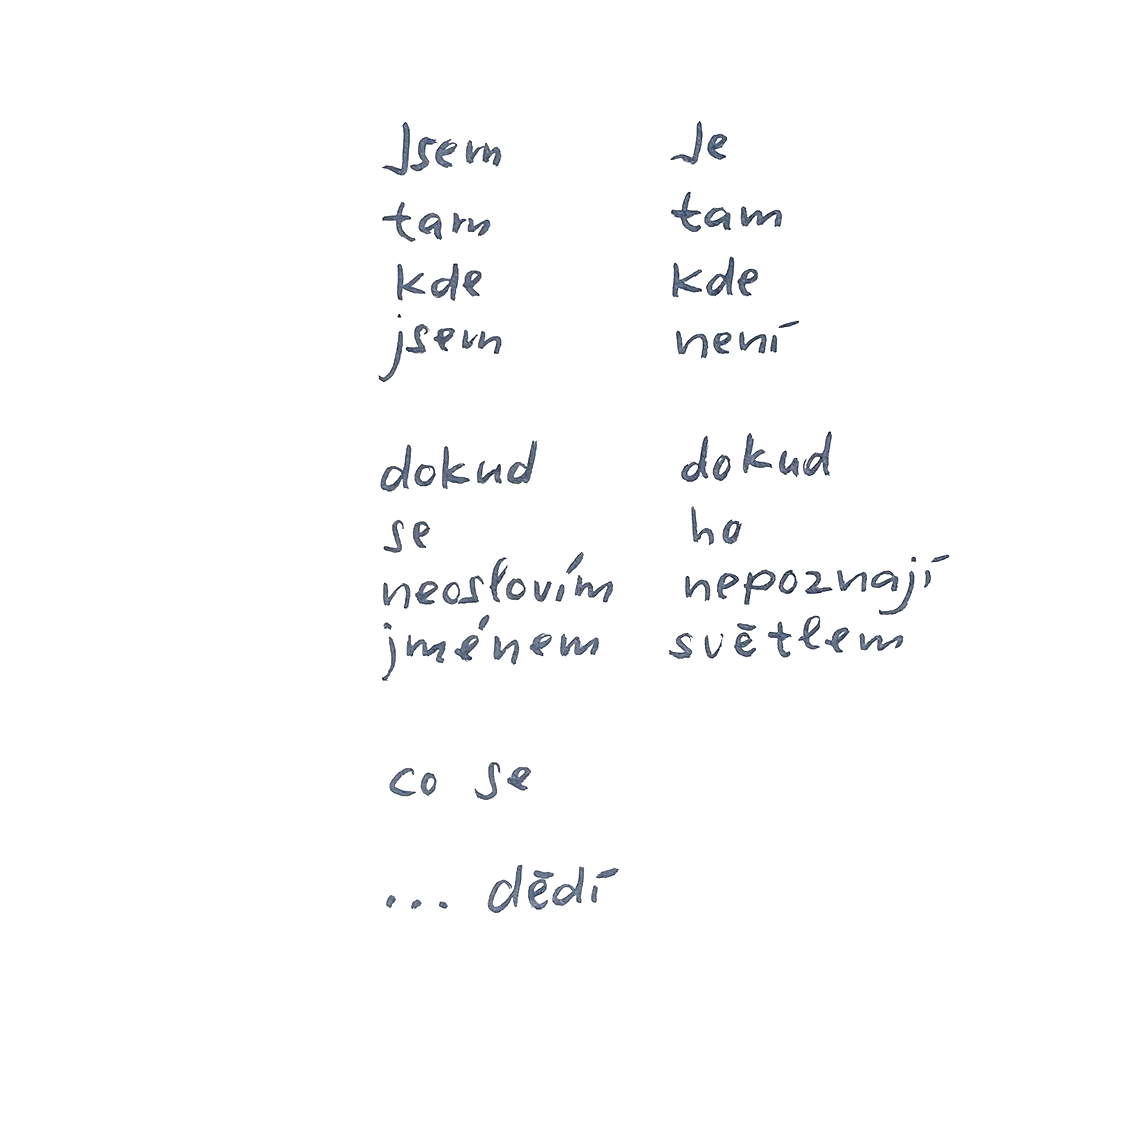 Jsem
tam
kde
jsem
dokud
se
neoslovím
jménem
Je
tam
kde
není
dokud
ho
nepoznají
světlem
co se
... dědí